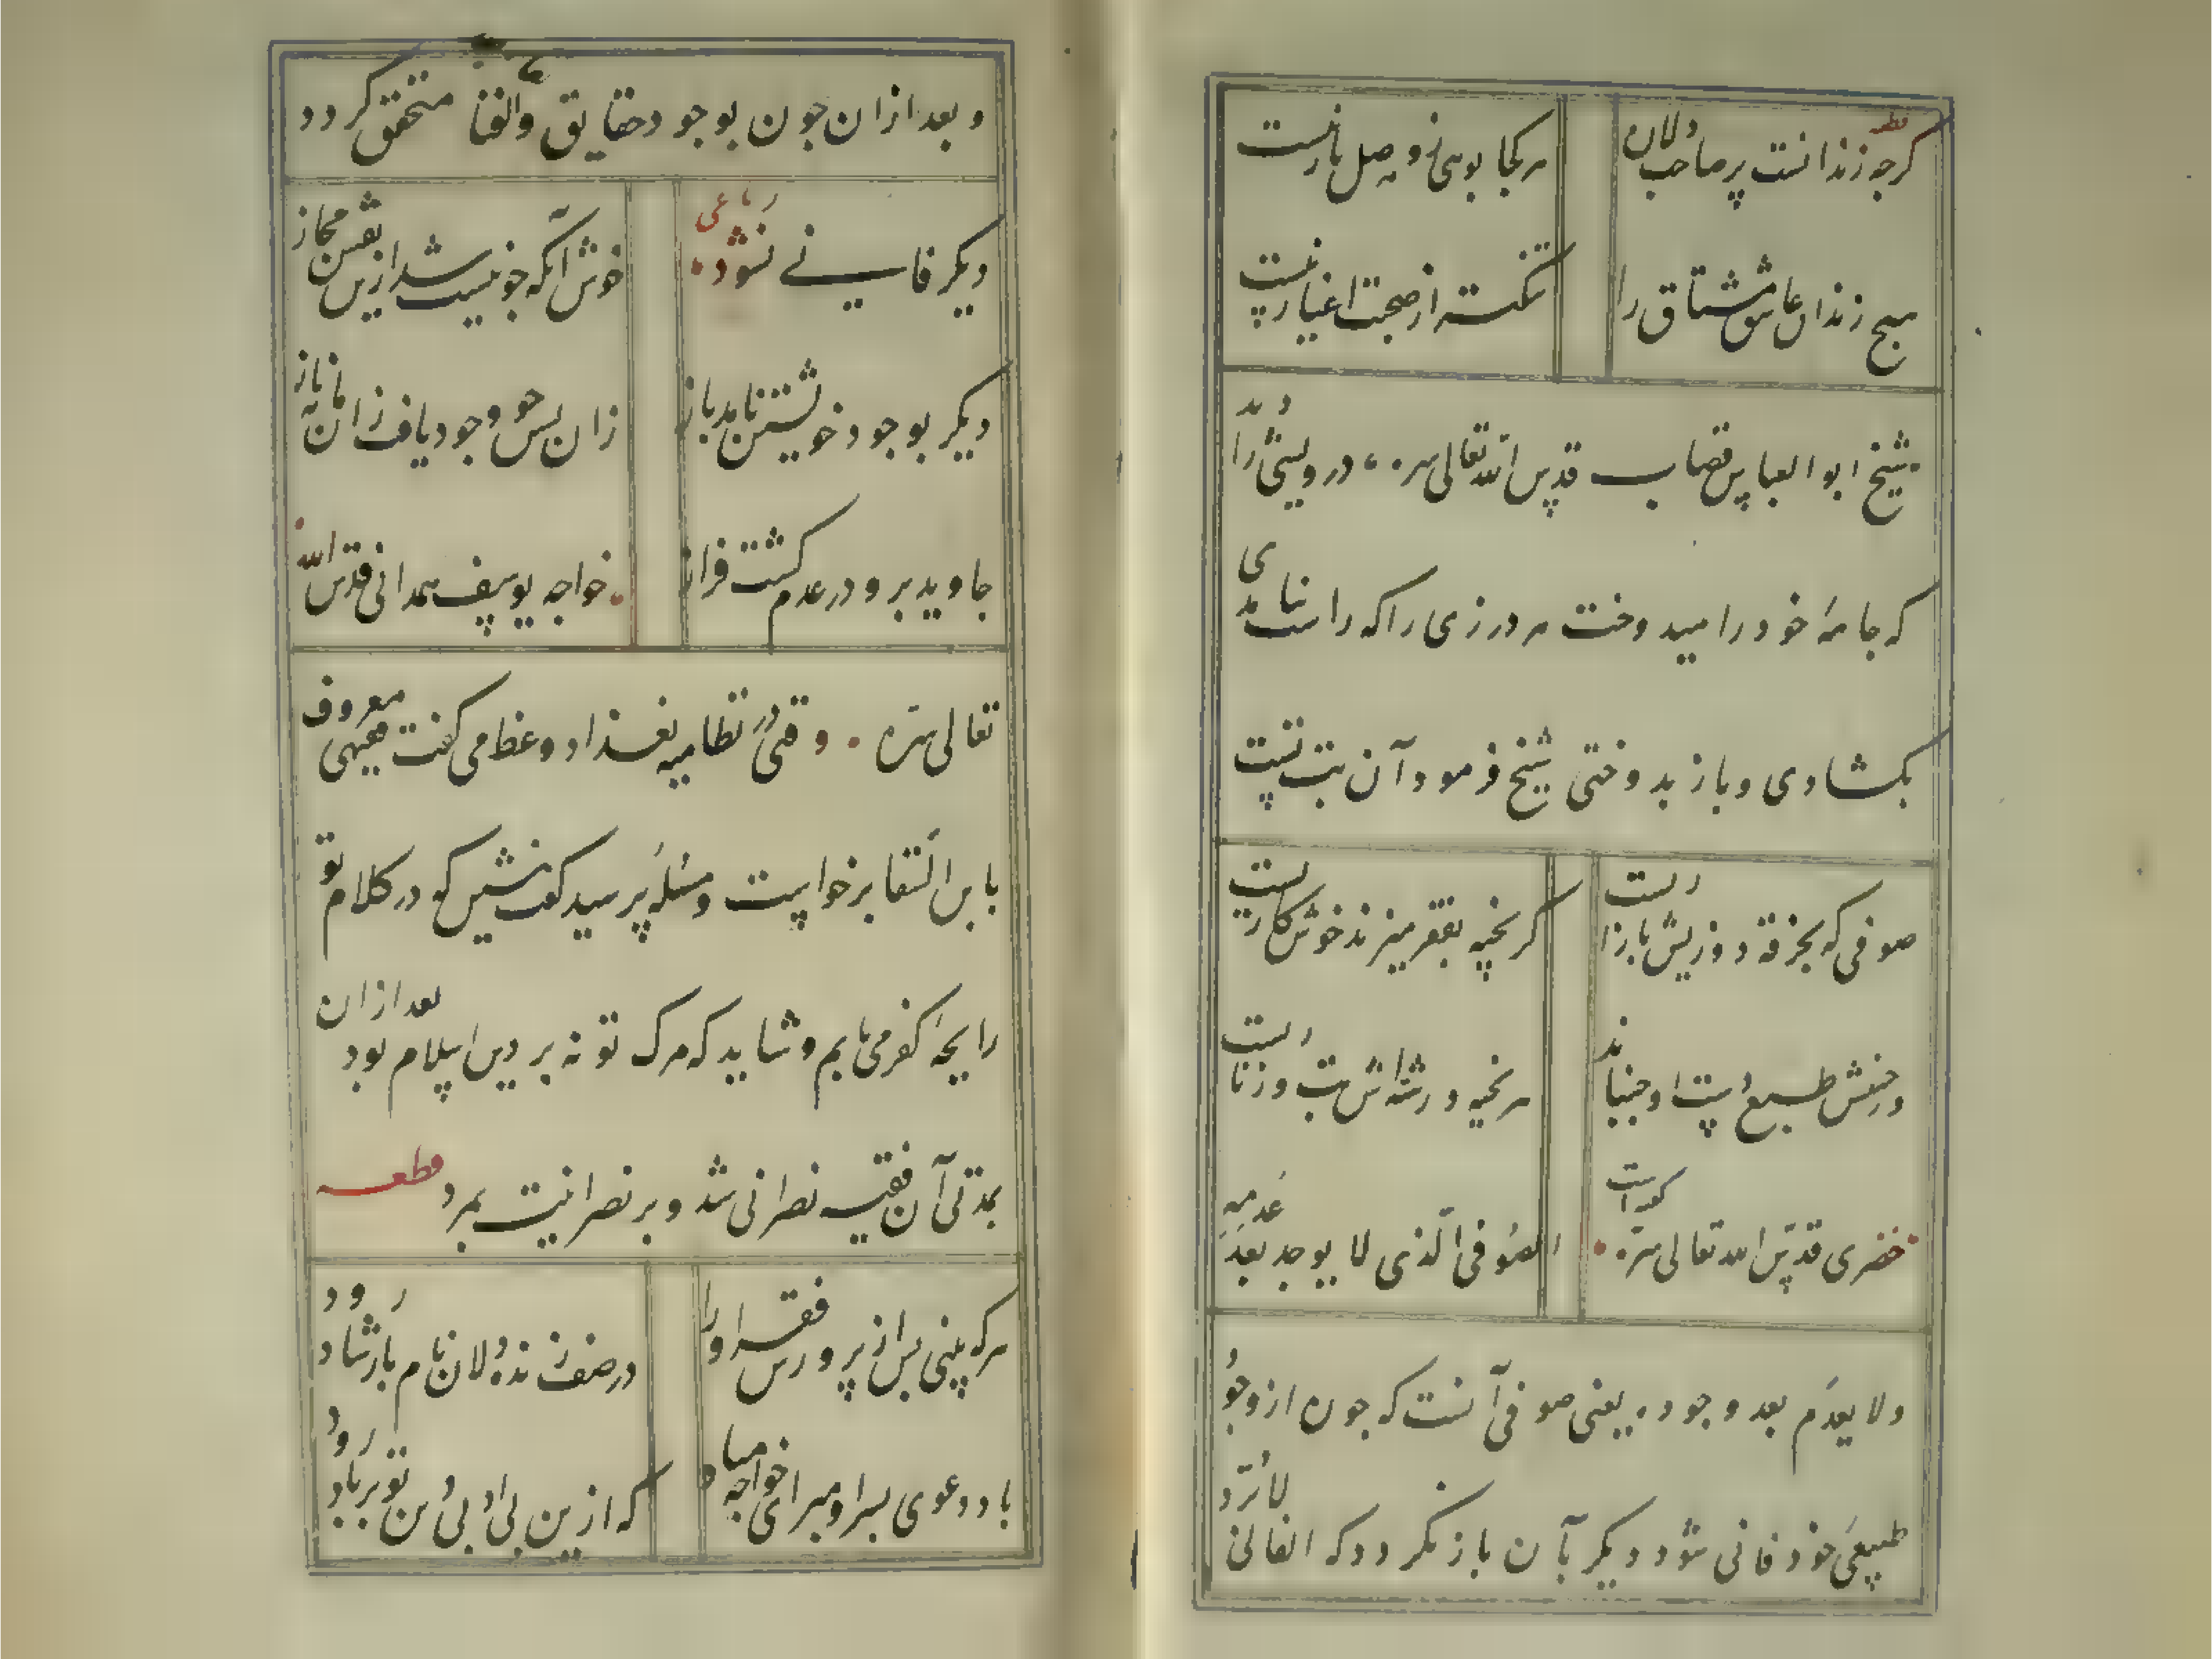 قطعه
گرچه زندانست پر صاحب دلان
هر کجا بوئی ز وصل یار نیست
هیچ زندان عاشق مشتاق را
تنگتر از صحبت اغیار نیست
شیخ ابو العباس قصاب قدس الله تعالی سره درویشی را دید
که جامهٔ خود را میدوخت هر درزی را که راست نیامدی
بگشادی و باز بدوختی شیخ فرمود آن بت تست
صوفی که بخرقه دوزیش بازاریست
گر بخیه بفقر میزند خوش کاریست
ور جنبش طبع دست او جنباند
هر بخیه و رشته اش بت و زناریست
خضری قدس الله تعالی سره گوید است
الصوفی الذی لا یوجد بعد عدمه
ولا یعدم بعد وجوده یعنی صوفی آنست که چون از وجود
طبیعی خود فانی شود دیگر بآن باز نگردد که الفانی لا یرد
و بعد از آن چون بوجود حقایق والفنا متحقق گردد
دیگر فانی نشود
رباعی
خوش آنکه چو نیست شد ازین نقش مجاز
دیگر بوجود خویشتن نامد باز
زان پس چو وجود یافت زان ناز
جاوید برو در عدم گشت فراز
خواجه یوسف همدانی قدس الله
تعالی سره وقتی در نظامیه بغداد وعظ می گفت فقیهی معروف
بابن السقا برخاست و مسئله پرسید گفت بنشین که در کلام تو
رایحهٔ کفر می یابم و شاید که مرگ تو نه بر دین اسلام بود بعد از آن
بمدتی آن فقیه نصرانی شد و بر نصرانیت بمرد قطعه
هر که بینی پس از پرورس فقر او را
در صف زنده دلان نام بارشاد رود
باد دعوی بسر او مبر ای خواجه مباد
که ازین بی ادبی دین تو بر باد رود